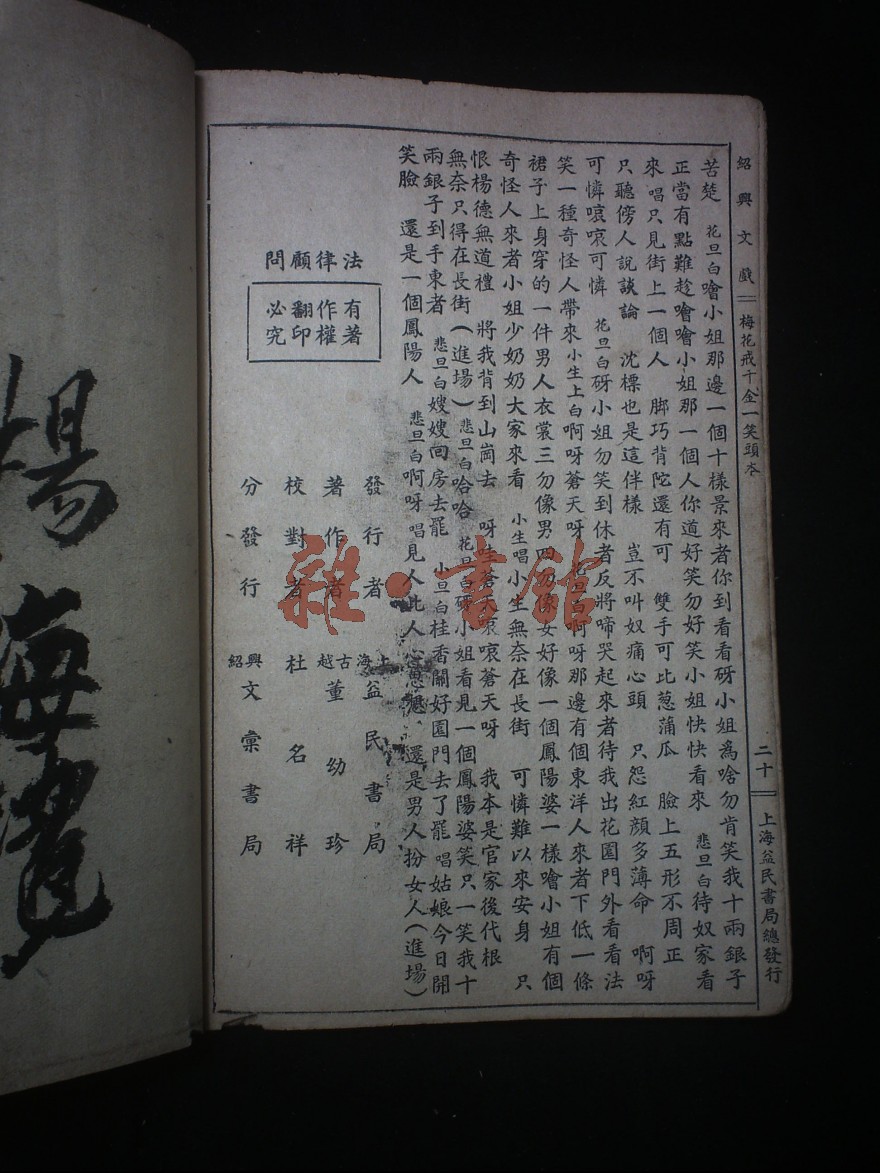 紹興文戲 梅花戒千金一笑頭本 二十 上海益民書局總發行
苦楚 花旦白噲小姐那邊一個十樣景來者你到看看砑小姐爲啥勿肯笑我十兩銀子
正當有點難趁噲噲小姐那一個人你道好笑勿好笑小姐快快看來 悲旦白待奴家看
來 唱只見街上一個人 脚巧背陀還有可 雙手可比葱蒲瓜 臉上五形不周正
只聽傍人說談論 沈標也是這伴樣 豈不叫奴痛心頭 只怨紅顔多薄命 啊呀
可憐哀哀可憐 花旦白砑小姐勿笑到休者反將啼哭起來者待我出花園門外看看法
笑一種奇怪人帶來 小生上白啊呀蒼天呀 花旦白啊呀那邊有個東洋人來者下低一條
裙子上身穿的一件男人衣裳三勿像男四勿像女好像一個鳳陽婆一樣噲小姐有個
奇怪人來者小姐少奶奶大家來看 小生唱小生無奈在長街 可憐難以來安身 只
恨楊德無道禮 將我背到山崗去 呀 蒼天哀哀蒼天呀 我本是官家後代根
無奈只得在長街(進場) 悲旦白哈哈 花旦白砑小姐看見一個鳳陽婆笑只一笑我十
兩銀子到手東者 悲旦白嫂嫂回房去罷 小旦白桂香關好園門去了罷 唱姑娘今日開
笑臉 還是一個鳳陽人 悲旦白啊呀 唱見人此人心 還是男人扮女人(進場)
法律顧問
有著作權翻印必究
發行者 上海益民書局
著作者 古越董幼珍
校對者 杜名祥
分發行 紹興文彙書局
雜·書館